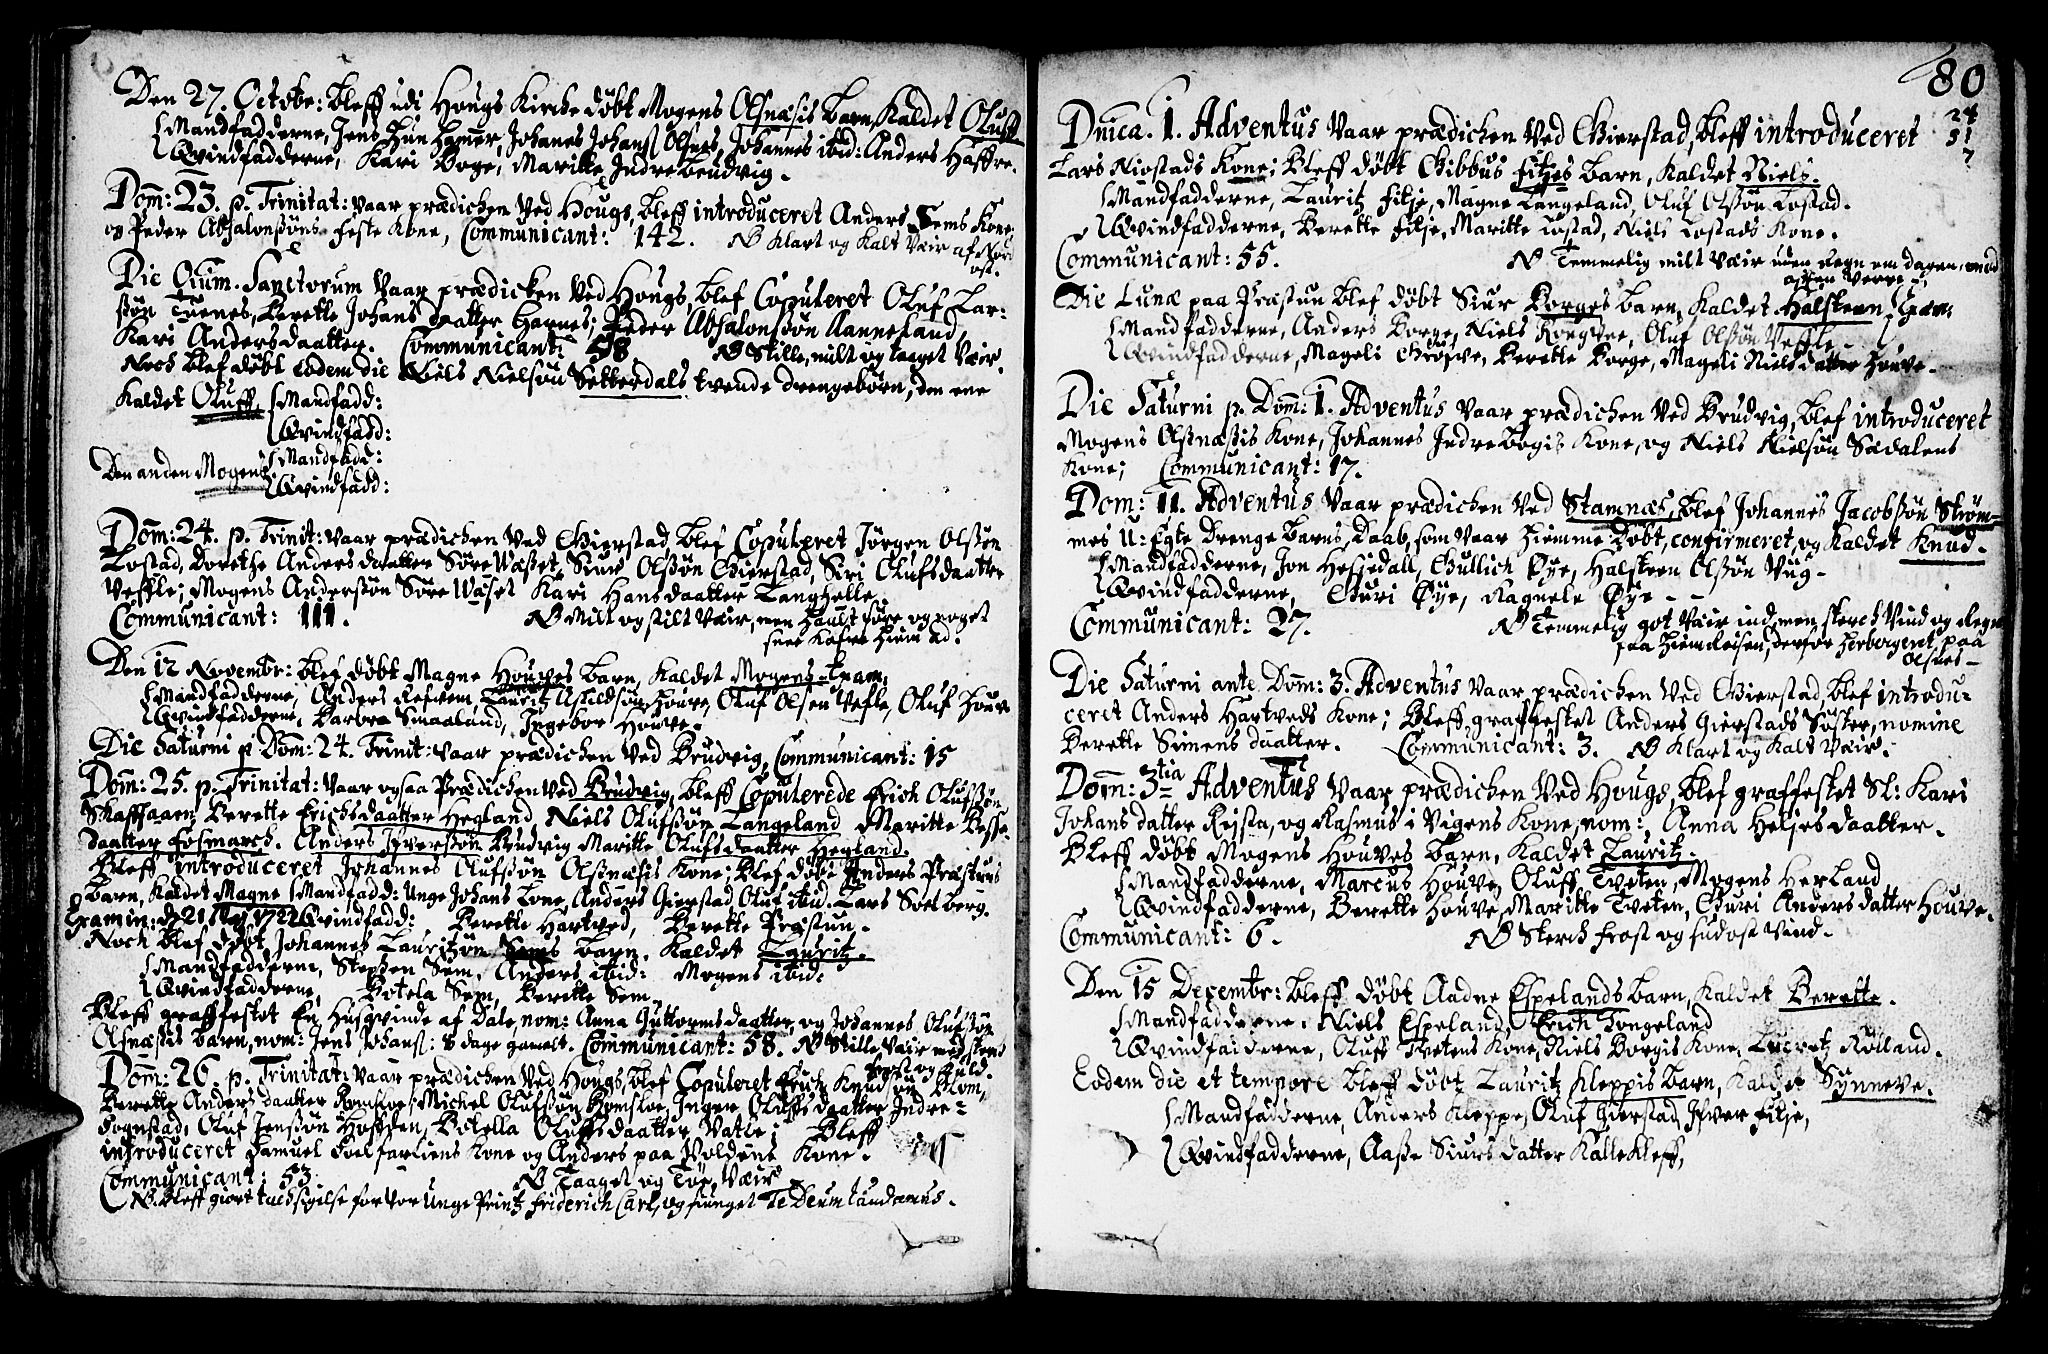 Den 27. Octobr: bleff udi Hougs Kircke döbt Mogens Olsnæsis Barn, Kaldet Oluff
Mandfadderne, Jens Hun Hamer, Johanes Johanß Olsnes, Johannes ibid: Anders Haffre.
Qvindfadderne, Kari Borge, Maritte Indrebrudvig.
Dom: 23. p. Trinitat: vaar prædichen ved Hougs, bleff introduceret Anders Sems Kone,
og Peder Absalonssöns feste Kone, Communicant: 142. NB Klart og Kalt Vær af Nord
ost.
Die Oium. Sanctorum vaar prædicken ved Hougs, blef Copuleret Oluf Lar:
ßön Tuenes, Berette Johans daatter Hannes; Peder Absalonssön Aanneland,
Kari Andersdaatter. Communicant: 58 NB Stille, milt og taaget Vær.
Noch blef döbt eodem die Niels Nielsøn Setterdals tvende drengebörn, den ene
Kaldet Oluff, Mandfadd:
Qvindfadd:
Mandfadd:
Den anden Mogens Qvindfadd:
Dom: 24. p. Trinit: vaar prædichen ved Gierstad, blef Copuleret Jörgen Olssön
Lostad, Dorethe Anders daatter Söre Waset, Siur Olssön Gierstad, Siri Olufsdaatter
Veffle; Mogens Anderssön Söre Waset Kari Hans daatter Langhelle.
Communicant: 111. NB Milt og stilt vær, men haalt före og noget
snee
Den 12 Novembr: blef döbt Magne Houves Barn, Kaldet Mogens. Exam,
Mandfadderne, Anders Lauritz Houve, Oluf Olsen Vefle, Oluf Houv
Qvindfadderne, Barbra Smaaland, Ingebor Houve.
Die Saturni p Dom: 24. Trinit: vaar prædichen ved Brudvig, Communicant: 15
Dom: 25. p. Trinitat: vaar ogsaa Prædichen ved Brudvig, bleff Copulerede Erich Olufssön
Skaffhaaen Berette Erichsdaatter Hegland, Niels Olufssön Langeland Maritte Besse-
daatter fosmarch. Anders Ifverssön Brudvig Maritte Olufsdaatter Hegland.
Bleff introduceret Johannes Olufssön Olssnæsis Kone; Blef döbt Anders Præstuns
Barn, Kaldet Magne Mandfadd: Unge Johans Lone, Anders Gierstad Oluf ibid. Lars Soelberg.
Examin: d. 21 1722 Qvindfadd: Berette Hartved, Berette Præstun.
Noch blef döbt Johannes Lauritzön Sems Barn, Kaldet Lauritz.
Mandfadderne, Stephen Sem, Anders ibid: Mogens ibid:
Qvindfadderne, Botela Sem, Berette Sem.
Bleff graffestet En Husqvinde af Dale, nom: Anna Guttormsdaatter, og Johannes Olufsön
Olsnæsis Barn, nom: Jens Johanß: 8 dage gamelt. Communicant: 58. NB Stille Vær med sterch
frost og Kuld.
Dom: 26. p. Trinitat: vaar prædichen ved Hougs, blef Copuleret Erich Knudssön Blom,
Berette Anders daatter Romsloe; Michel Olufssön Romsloe, Inger Oluffs daatter Indre-
Fognstad, Oluf Jenssön Hoffden, Botella Oluffsdaatter Vatle; Bleff
introduceret Samuel Kone og Anders paa Voldens Kone.
Communicant: 53. NB Taaget og Töe, Vær
NB. Bleff giort tachsigelse for vor Unge Printz Friderich Carl, og siunget Te Deum laudamus.
80
24
31
7
Dnica. 1. Adventus vaar prædichen ved Gierstad, bleff introduceret
Lars Niostads Kone; Bleff döbt Gibbus Fitjes Barn, Kaldet Niels.
Mandfadderne, Lauritz Fitje, Magne Langeland, Oluf Olssön Lostad.
Qvindfadderne, Berette Fitje, Maritte Lostad, Niels Lostads Kone.
Communicant: 55. NB Temmelig milt Vær uden Regn om dagen, med
Die Lunæ paa Præstun blef döbt Siur Borges Barn, Kaldet Halsteen, Exam:
Mandfadderne, Anders Borge, Niels Rongtve, Oluf Olssön Veffle,
Qvindfadderne, Mageli Gröfve, Berette Borge, Mageli Niels datter Houve.
Die Saturni p. Dom: 1. Adventus vaar prædichen ved Brudvig, blef introduceret
Mogens Olssnæsis Kone, Johannes Indrebögis Kone, og Niels Nielsön Sædalens
Kone; Communicant: 17.
Dom: 11. Adventus vaar prædichen ved Stamnæs, blef Johannes Jacobssön Ström-
mes U: Egte Drenge Barns Daab, som vaar hiemme Döbt, confirmeret, og Kaldet Knud.
Mandfadderne, Jon Hesjedall, Gullich Öye, Halsteen Olssön Vug.
Qvindfadderne, Guri Öye, Ragnele Öye.
Communicant: 27. NB Temmelig got Vær ind, men sterch Vind og Regn
paa hiemreisen, derfor herbergeret paa
Olsnes
Die Saturni ante Dom: 3. Adventus vaar prædichen ved Gierstad, blef introdu-
ceret Anders Hartveds Kone; Bleff graffestet Anders Gierstads Söster, nomine
Berette Simens daatter. Communicant: 3. NB Klart og Kalt Vær.
Dom: 3tia Adventus vaar prædichen ved Hougs, blef graffestet Sl: Kari
Johans datter Reista, og Rasmus i Vigens Kone, nom: Anna Heljes daatter.
Bleff döbt Mogens Houves Barn, Kaldet Lauritz.
Mandfadderne, Marcus Houve, Oluff Tveten, Mogens Herland
Qvindfadderne, Berette Houve, Maritte Tveten, Guri Anders datter Houve.
Communicant: 6. NB Sterch frost og sudost Vind.
Den 15 Decembr: bleff döbt Aadne Espelands Barn, Kaldet Berette.
Mandfadderne. Niels Espeland, Erich Tongeland
Qvindfadderne, Oluff Tvetens Kone, Niels Borgis Kone, Lucretz Rölland.
Eodem die et tempore bleff döbt Lauritz Kleppis Barn, Kaldet Synneve.
Mandfadderne, Anders Kleppe, Oluf Gierstad, Ifver Fitje,
Qvindfadderne, Aaße Siurs datter Kallekleff,